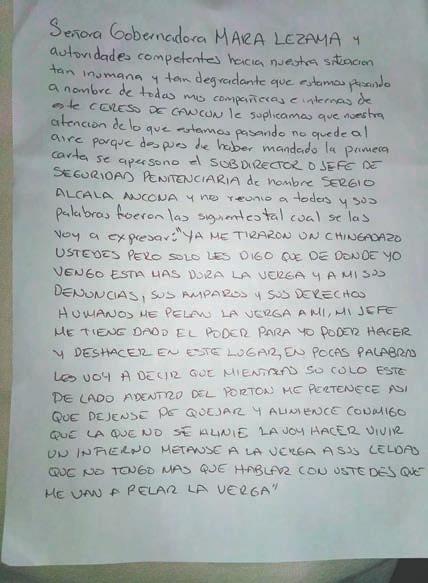 Señora Gobernadora MARA LEZAMA y
autoridades competentes hacia nuestra situacion
tan inumana y tan degradante que estamos pasando
a nombre de todas mis compañeras e internas de
este CERESO DE CANCUN le suplicamos que nuestra
atencion de lo que estamos pasando no quede al
aire porque despues de haber mandado la primera
carta se apersono el SUBDIRECTOR O JEFE DE
SEGURIDAD PENITENCIARIA de nombre SERGIO
ALCALA ANCONA y nos reunio a todas y sus
palabras fueron las siguientes tal cual se las
voy a expresar: "YA ME TIRARON UN CHINGADAZO
USTEDES PERO SOLO LES DIGO QUE DE DONDE YO
VENGO ESTA MAS DURA LA VERGA Y A MI SUS
DENUNCIAS, SUS AMPAROS Y SUS DERECHOS
HUMANOS ME PELAN LA VERGA A MI, MI JEFE
ME TIENE DADO EL PODER PARA YO PODER HACER
Y DESHACER EN ESTE LUGAR, EN POCAS PALABRAS
LES VOY A DECIR QUE MIENTRAS SU CULO ESTE
DE LADO ADENTRO DEL PORTON ME PERTENECE ASI
QUE DEJENSE DE QUEJAR Y ALINIENCE CONMIGO
QUE LA QUE NO SE ALINIE LA VOY HACER VIVIR
UN INFIERNO METANSE A LA VERGA A SUS CELDAS
QUE NO TENGO MAS QUE HABLAR CON USTEDES QUE
ME VAN A PELAR LA VERGA"